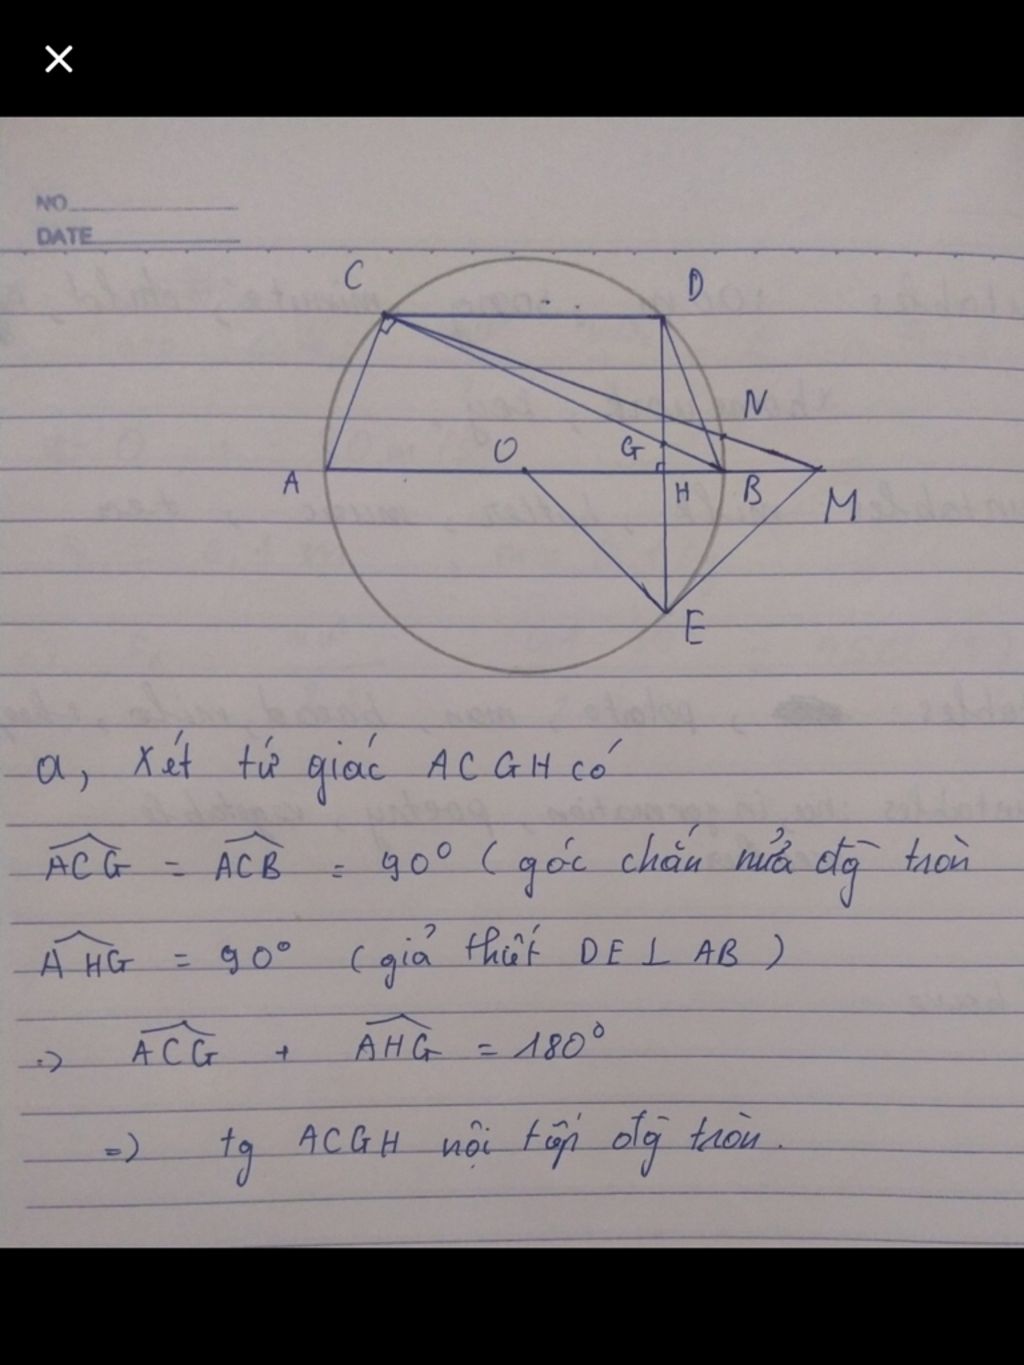 NO
DATE
C
D
N
O
G
A
H
B
M
E
a, Xét tứ giác ACGH có
ACG = ACB = 90° (góc chắn nửa đg tròn
AHG = 90° (giả thiết DE ⊥ AB)
=> ACG + AHG = 180°
=> tg ACGH nội tiếp đg tròn.